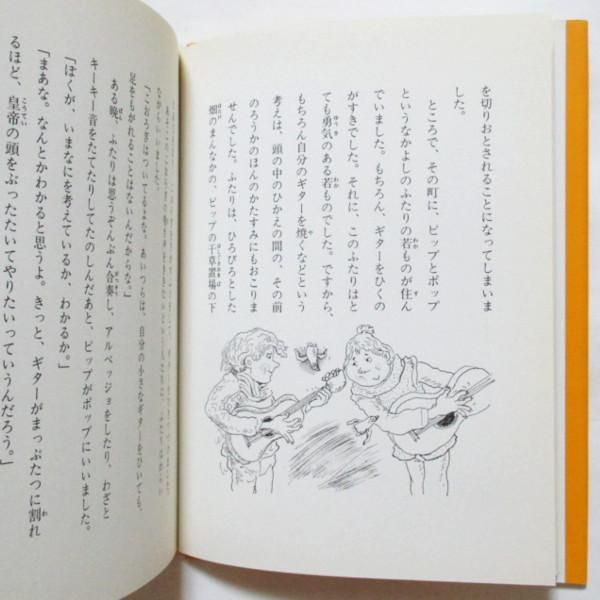 を切りおとされることになってしまいま
した。
ところで、その町に、ピップとポップ
というなかよしのふたりの若ものが住ん
でいました。もちろん、ギターをひくの
がすきでした。それに、このふたりはと
ても勇気のある若ものでした。ですから、
もちろん自分のギターを焼くなどという
考えは、頭の中のひかえの間の、その前
のろうかのほんのかたすみにもおこりま
せんでした。ふたりは、ひろびろとした
畑のまんなかの、ピップの干草置場の下
ながらいいました。
「こおろぎはついてるよな。あいつらは、自分の小さなギターをひいても、
足をもがれることはないんだからな。」
ある晩、ふたりは思うぞんぶん合奏し、アルペッジョをしたり、わざと
キーキー音をたてたりしてたのしんだあと、ピップがポップにいいました。
「ぼくが、いまなにを考えているか、わかるか。」
「まあな。なんとかわかると思うよ。きっと、ギターがまっぷたつに割れ
るほど、皇帝の頭をぶったたいてやりたいっていうんだろう。」